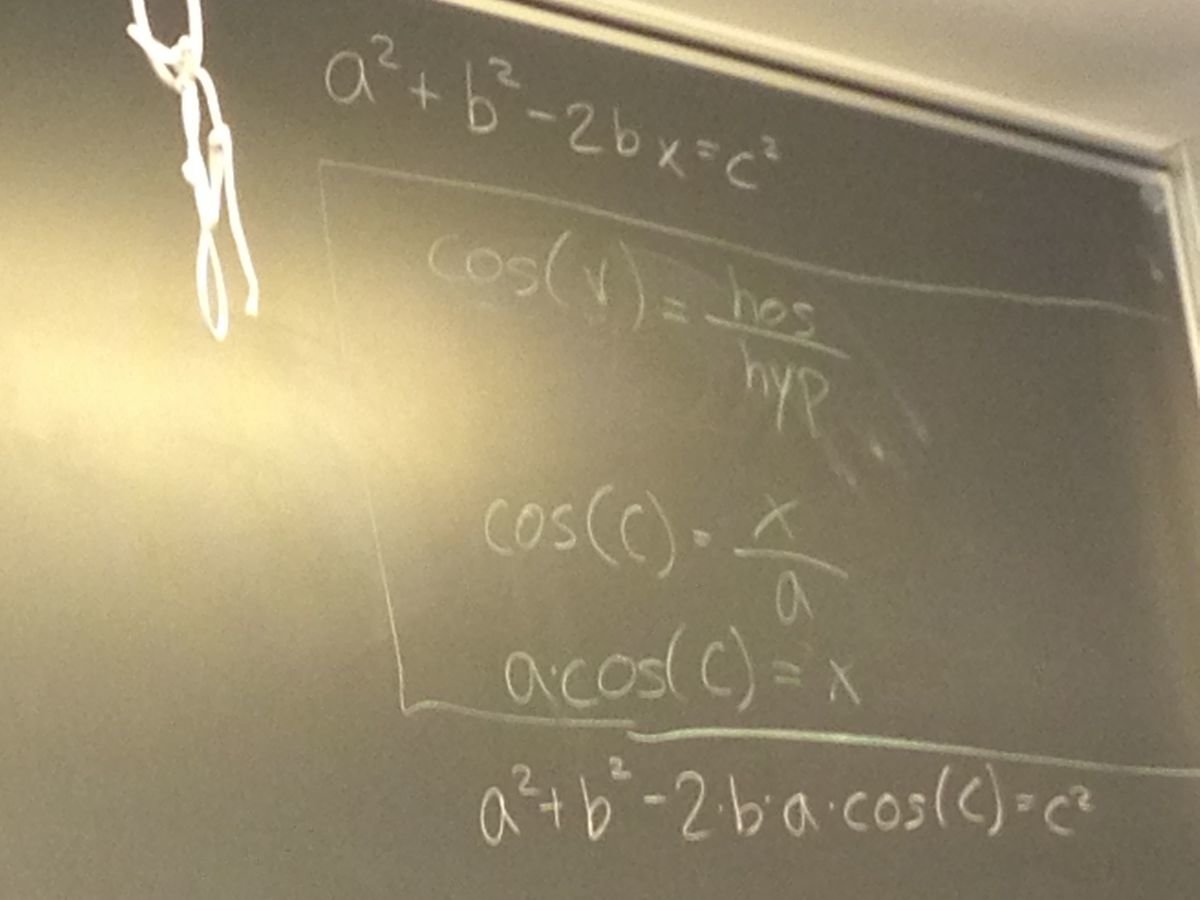 a² + b² - 2bx = c²
cos(v) = hos/hyp
cos(C) = x/a
a·cos(C) = x
a² + b² - 2·b·a·cos(C) = c²